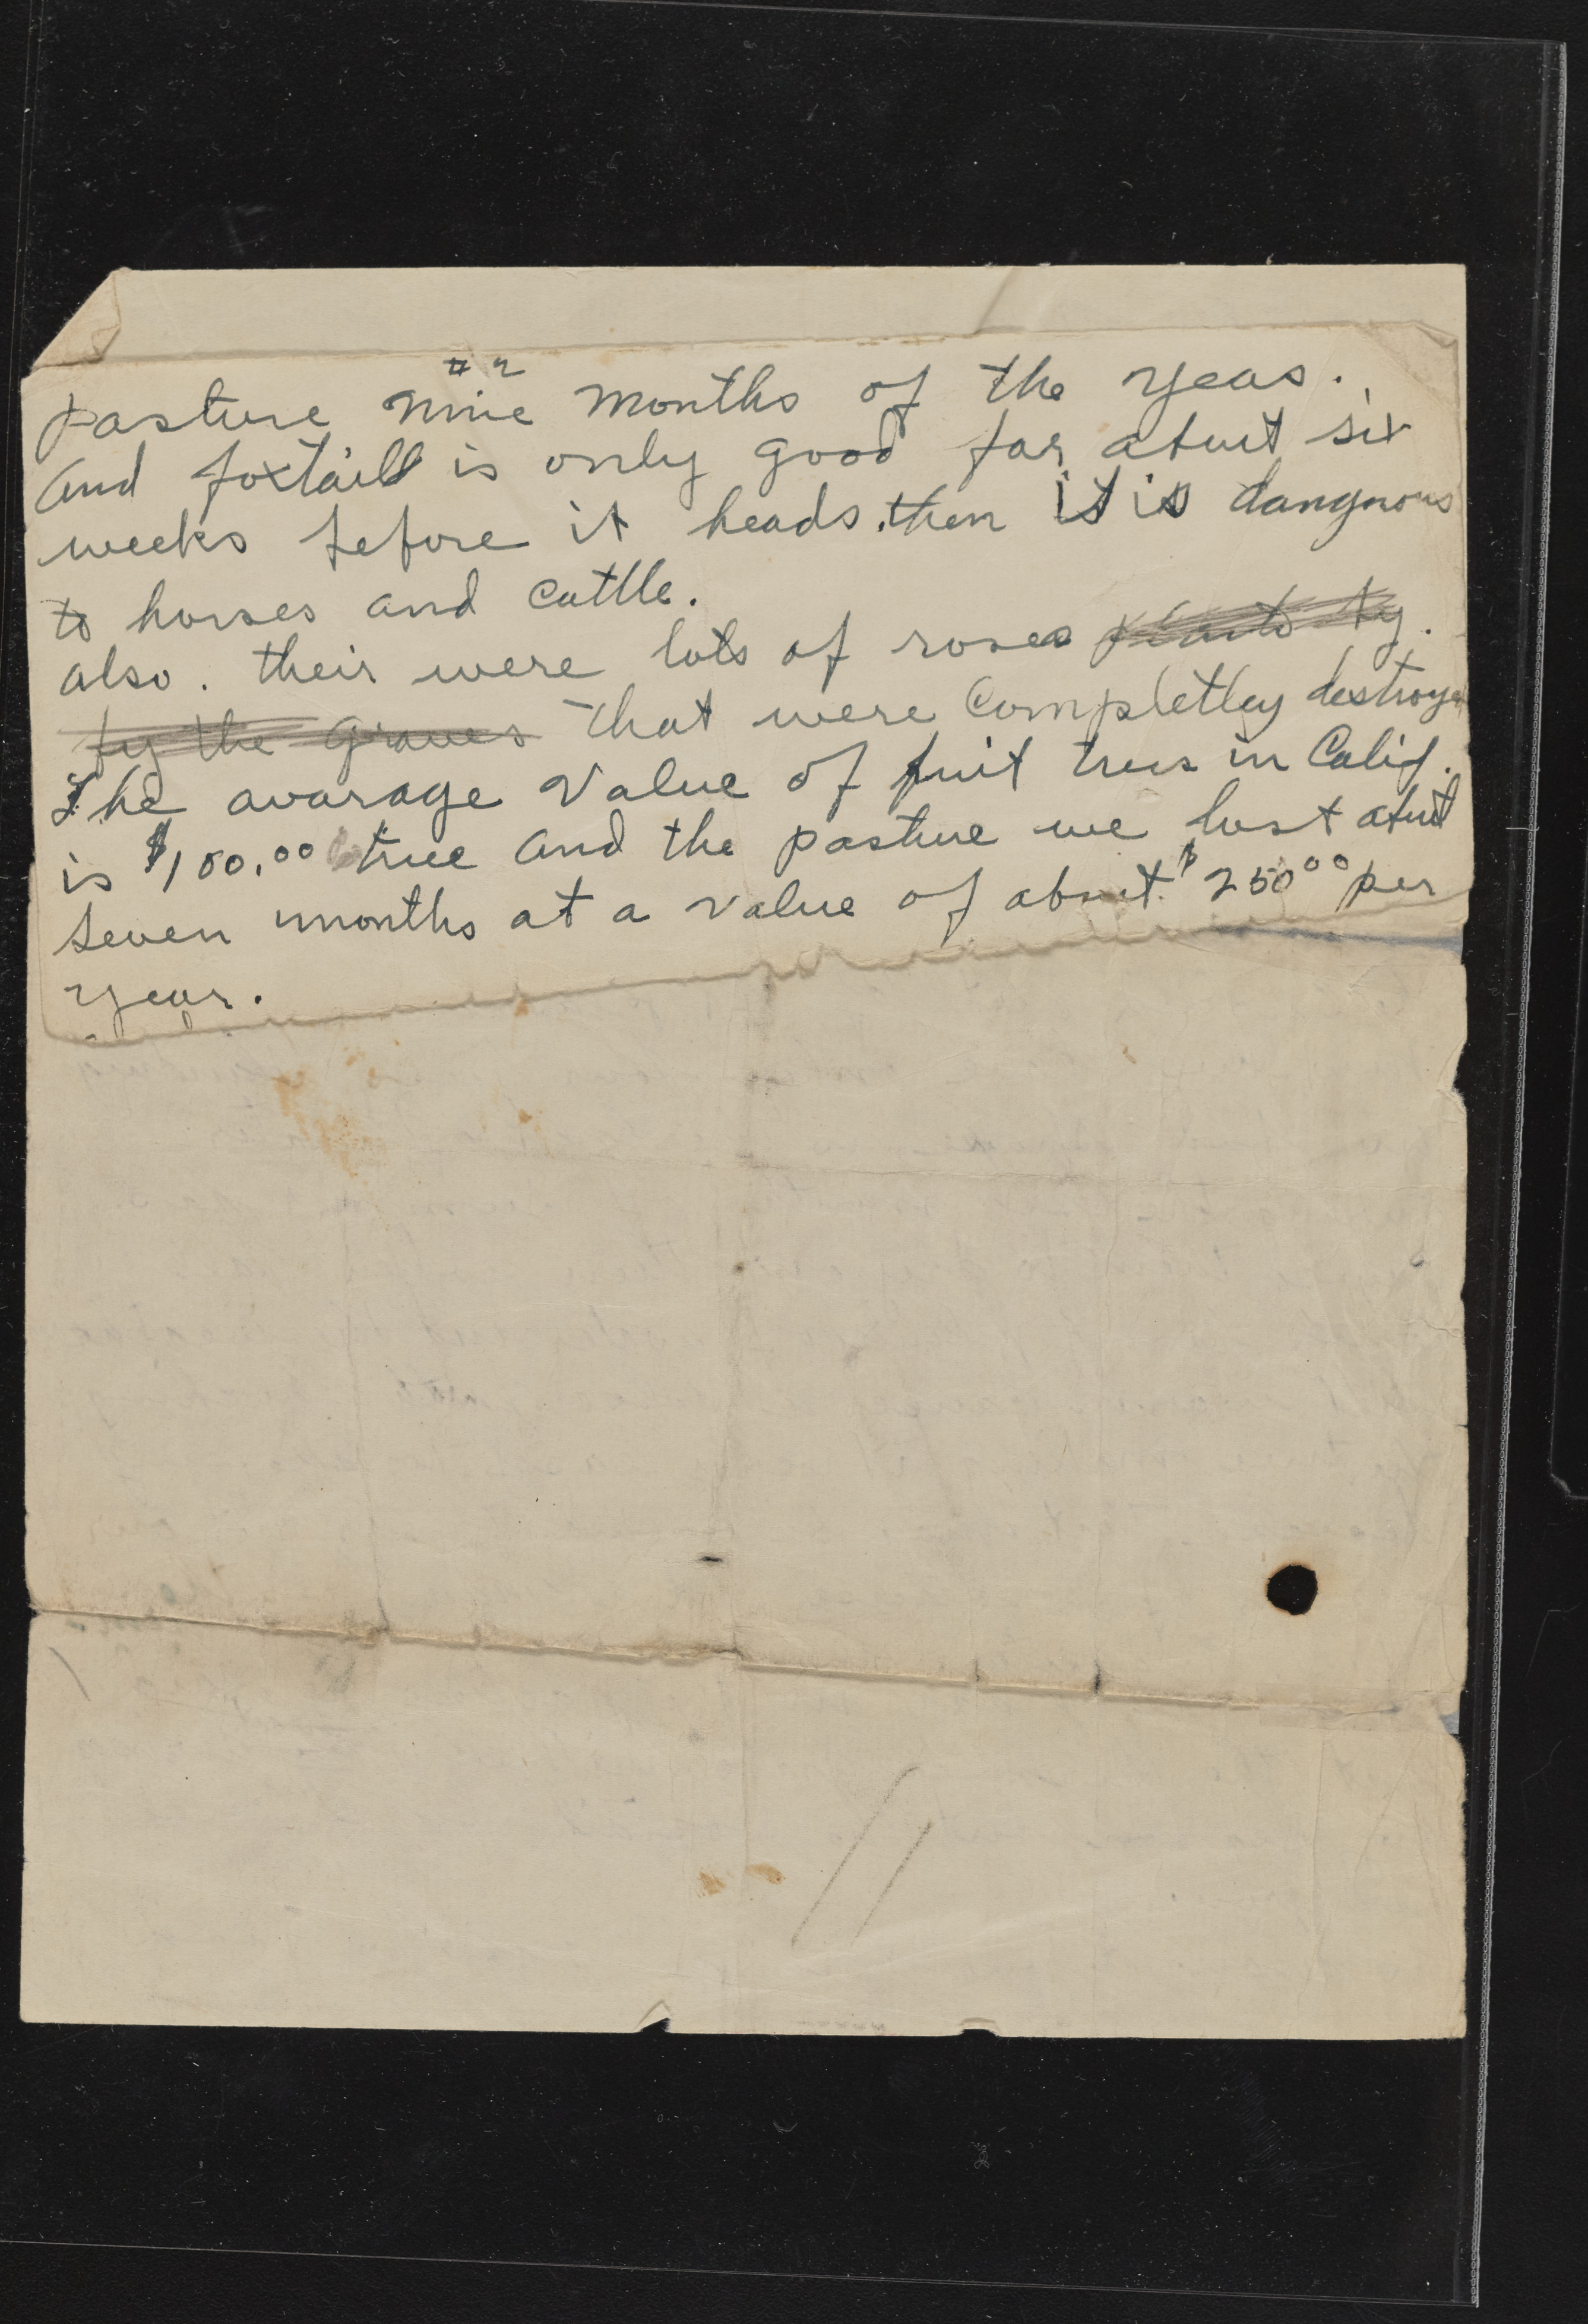 # 2
pasture nine months of the year.
and foxtaill is only good for about six
weeks before it heads. then it is dangrous
to horses and cattle.
also. their were lots of roses plants by.
by the graves that were completley destroyed
The avarage value of fruit trees in Calif.
is $100.00 tree and the pasture we lost about
seven months at a value of about $250.00 per
year.